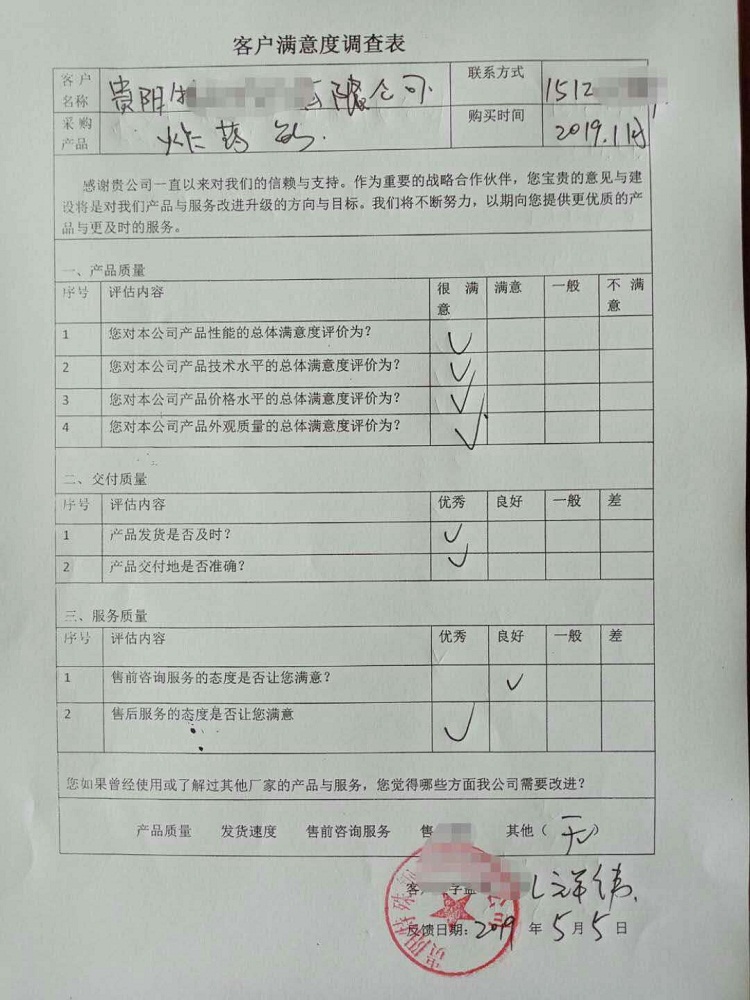 客户满意度调查表
客户名称 贵阳 有限公司 联系方式 1512
采购产品 炸药 购买时间 2019.1月
感谢贵公司一直以来对我们的信赖与支持。作为重要的战略合作伙伴，您宝贵的意见与建
设将是对我们产品与服务改进升级的方向与目标。我们将不断努力，以期向您提供更优质的产
品与更及时的服务。
一、产品质量
序号 评估内容 很满意 满意 一般 不满意
1 您对本公司产品性能的总体满意度评价为？ ✓
2 您对本公司产品技术水平的总体满意度评价为？ ✓
3 您对本公司产品价格水平的总体满意度评价为？ ✓
4 您对本公司产品外观质量的总体满意度评价为？ ✓
二、交付质量
序号 评估内容 优秀 良好 一般 差
1 产品发货是否及时？ ✓
2 产品交付地是否准确？ ✓
三、服务质量
序号 评估内容 优秀 良好 一般 差
1 售前咨询服务的态度是否让您满意？ ✓
2 售后服务的态度是否让您满意 ✓
您如果曾经使用或了解过其他厂家的产品与服务，您觉得哪些方面我公司需要改进？
产品质量 发货速度 售前咨询服务 售 其他（无）
客 字盖
反馈日期：2019年5月5日
贵阳特殊 公司